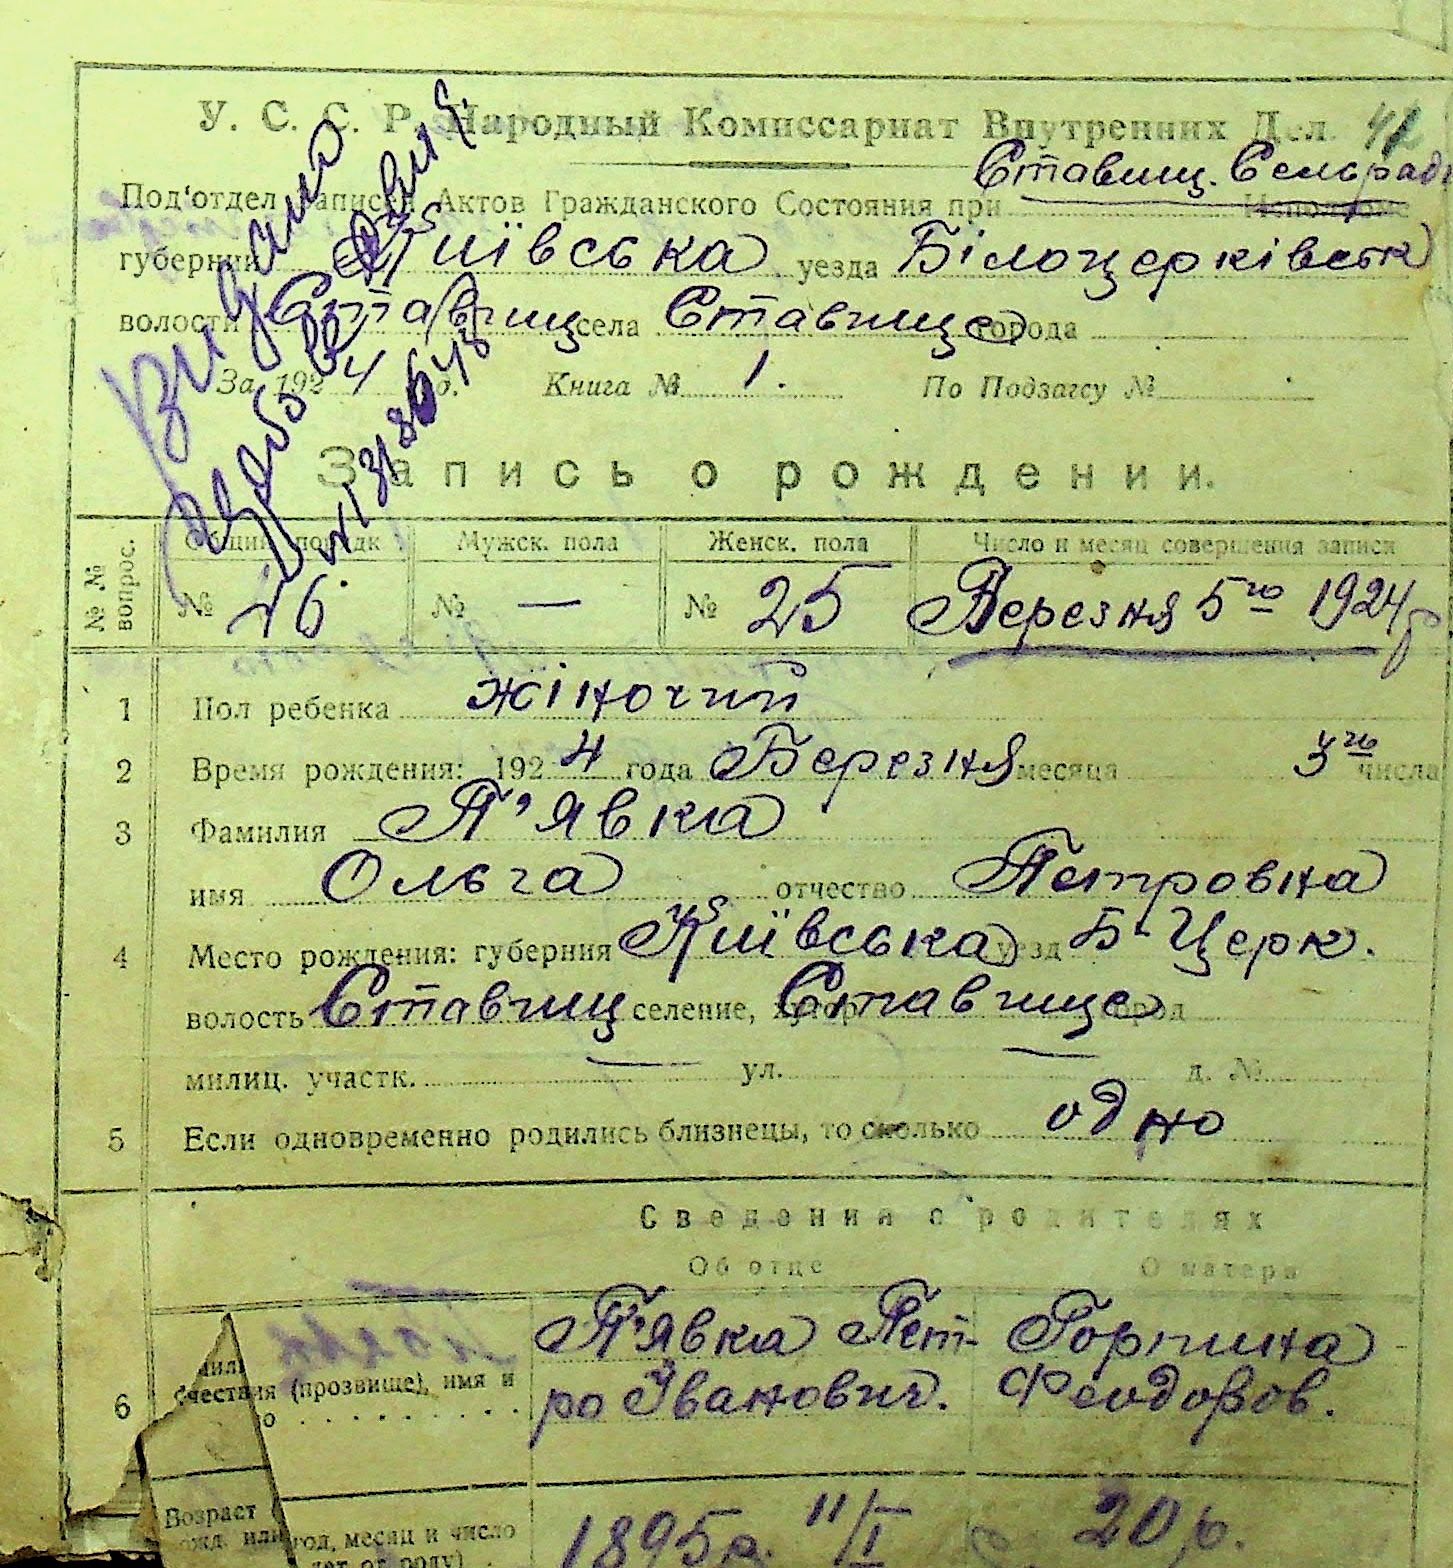 У. С. С. Р. Народный Комиссариат Внутренних Дел. 42
Ставищ. Сельрад
Под'отдел Записи Актов Гражданского Состояния при Исполкоме
губернии Київська уезда Білоцерківськ
волости Ставищ села Ставище города
За 1924 г. Книга № 1. По Подзагсу №
Видано
№ 138648
Запись о рождении.
№ № вопрос. Общий порядк. Мужск. пола Женск. пола Число и месяц совершения записи
№ 46 № — № 25 Березня 5го 1924 р
1 Пол ребенка жіночий
2 Время рождения: 1924 года Березня месяца 3го числа
3 Фамилия П'явка
имя Ольга отчество Петровна
4 Место рождения: губерния Київська уезд Б-Церк.
волость Ставищ селение, хутор Ставище город
милиц. участк. — ул. — д. №
5 Если одновременно родились близнецы, то сколько одно
Сведения о родителях
Об отце О матери
П'явка Пет- Горпина
6 (прозвище), имя и ро Іванович. Феодоров.
Возраст
год, месяц и число 1895 р. 11/I 20 р.
лет от роду)